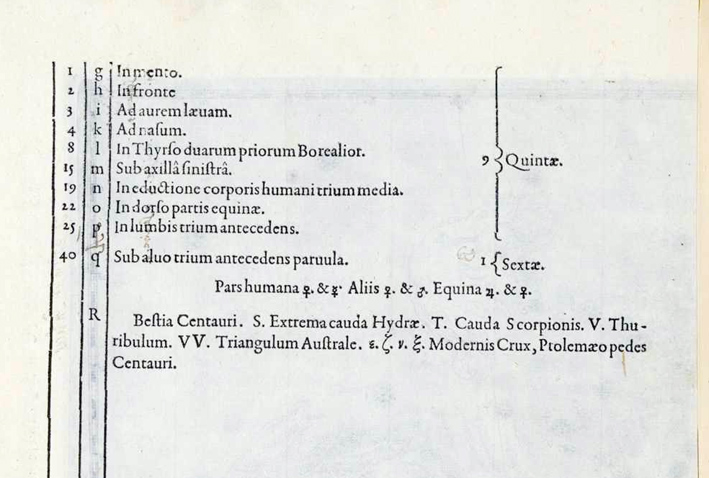 1 g In mento.
2 h In fronte
3 i Ad aurem læuam.
4 k Ad naſum.
8 l In Thyrſo duarum priorum Borealior.
15 m Sub axillâ ſiniſtrâ.
19 n In eductione corporis humani trium media.
22 o In dorſo partis equinæ.
25 p In lumbis trium antecedens.
9 { Quintæ.
40 q Sub aluo trium antecedens paruula. 1 { Sextæ.
Pars humana ♀. & ☿. Aliis ♀. & ♂. Equina ♃. & ♀.
R Beſtia Centauri. S. Extrema cauda Hydræ. T. Cauda Scorpionis. V. Thu-
ribulum. VV. Triangulum Auſtrale. ε. ζ. ν. ξ. Modernis Crux, Ptolemæo pedes
Centauri.